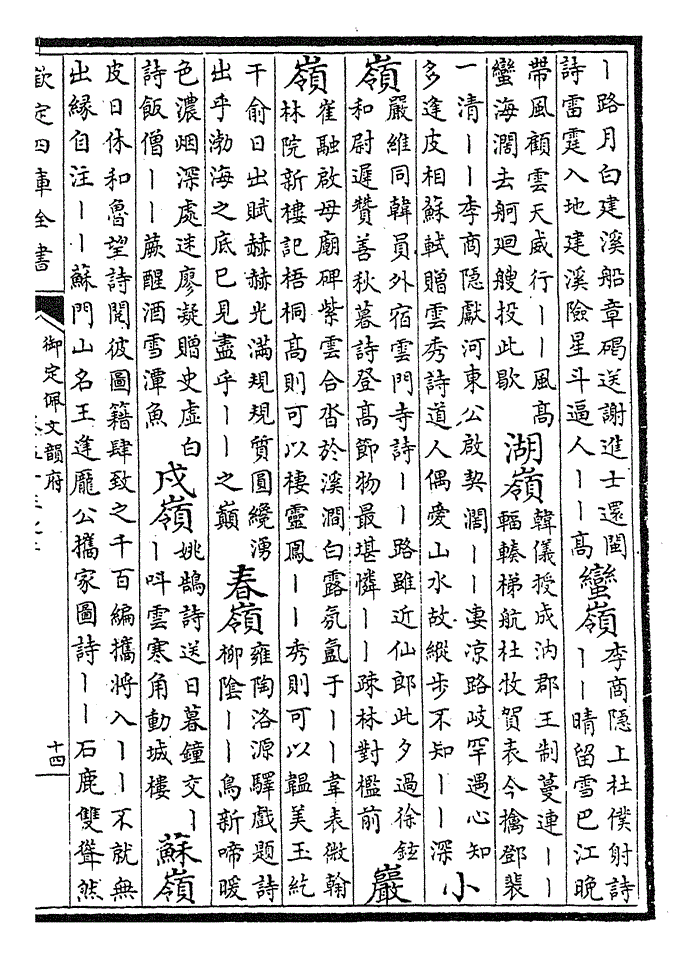 丨路月白建溪船章碣送謝進士還閩
詩雷霆入地建溪險星斗逼人丨丨高
蠻嶺
李商隱上杜僕射詩
丨丨晴留雪巴江晚
帶風顧雲天威行丨丨風高
蠻海濶去舸廻艘投此歇
湖嶺
韓儀授成汭郡王制蔓連丨丨
輻輳梯航杜牧賀表今擒鄧裴
一清丨丨李商隱獻河東公啟契濶丨丨凄凉路岐罕遇心知
多逢皮相蘇軾贈雲秀詩道人偶愛山水故縱步不知丨丨深
小
嶺
嚴維同韓員外宿雲門寺詩丨丨路雖近仙郎此夕過徐鉉
和尉遲贊善秋暮詩登高節物最堪憐丨丨疎林對檻前
巖
嶺
崔融啟母廟碑紫雲合沓於溪澗白露氛氲于丨丨韋表微翰
林院新樓記梧桐高則可以棲靈鳳丨丨秀則可以韞美玉紇
干俞日出賦赫赫光滿規規質圓纔湧
出乎渤海之底已見盡乎丨丨之巔
春嶺
雍陶洛源驛戲題詩
柳陰丨丨鳥新啼暖
色濃烟深處迷廖凝贈史虛白
詩飯僧丨丨蕨醒酒雪潭魚
戍嶺
姚鵠詩送日暮鐘交丨
丨呌雲寒角動城樓
蘇嶺
皮日休和魯望詩閱彼圖籍肆致之千百編攜將入丨丨不就無
出縁自注丨丨蘇門山名王逢龐公攜家圖詩丨丨石鹿雙聳然
欽定四庫全書
御定佩文韻府
十四